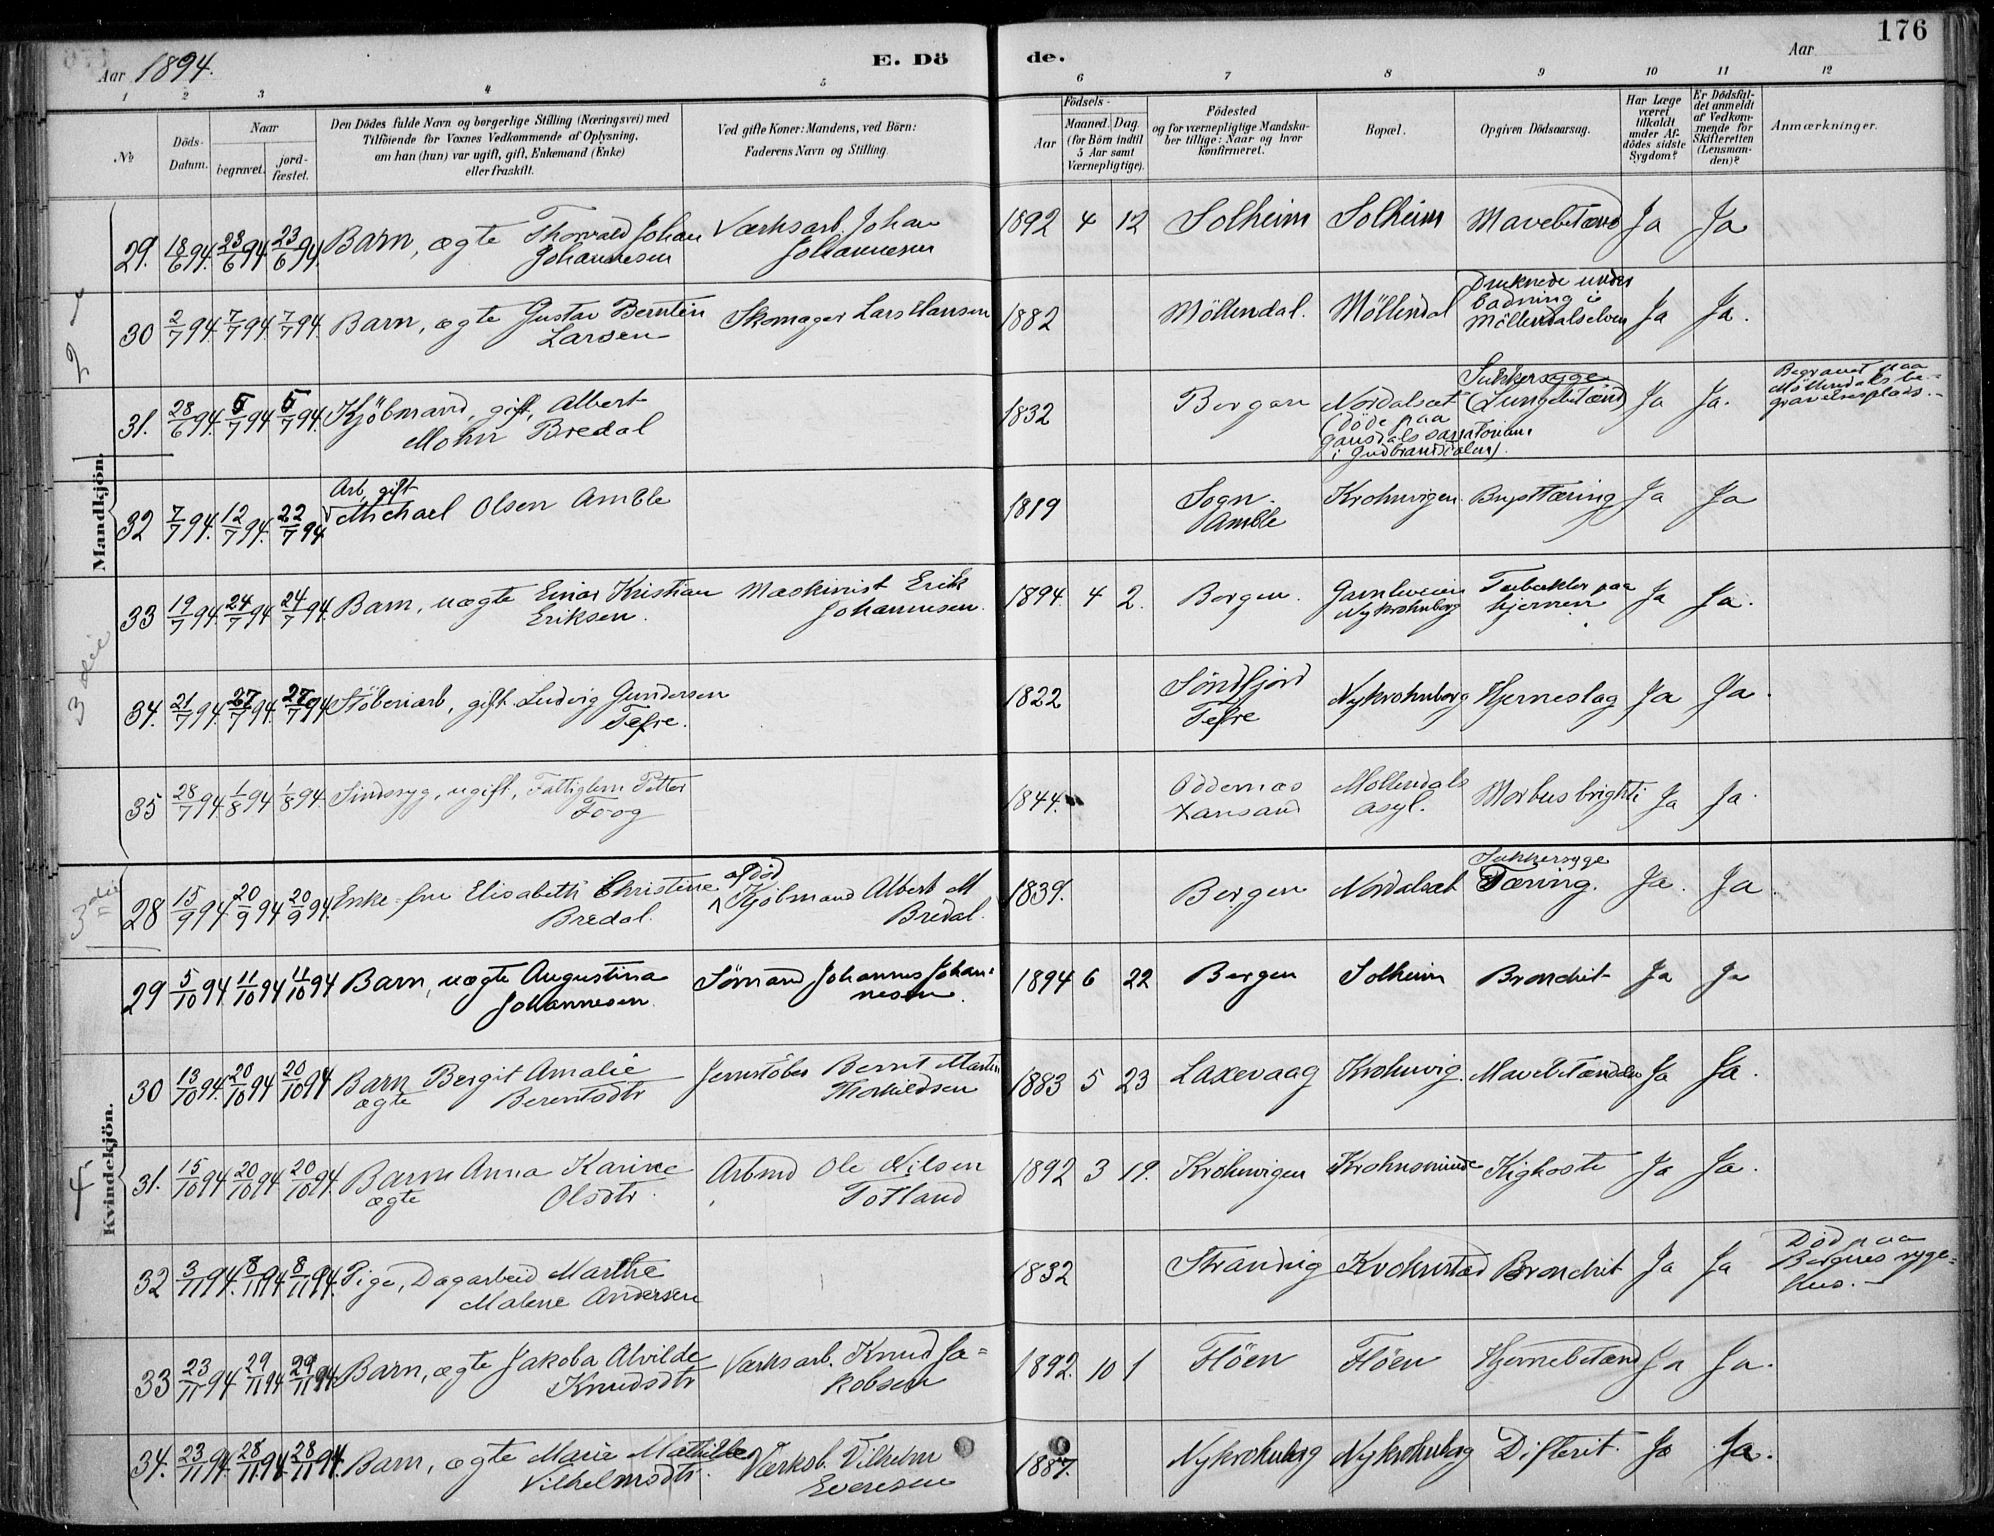 176
Aar 1894. E. Dö de. Aar
1 2 3 4 5 6 7 8 9 10 11 12
No
Döds-Datum.
Naar
begravet.
jord-fæstet.
Den Dödes fulde Navn og borgerlige Stilling (Næringsvei) med
Tilföiende for Voxnes Vedkommende af Oplysning,
om han (hun) var ugift, gift, Enkemand (Enke)
eller fraskilt.
Ved gifte Koner: Mandens, ved Börn:
Faderens Navn og Stilling.
Födsels-
Aar
Maaned. Dag.
(for Börn indtil
5 Aar samt
Værnepligtige).
Födested
og for værnepligtige Mandska-
ber tillige: Naar og hvor
konfirmeret.
Bopæl.
Opgiven Dödsaarsag.
Har Læge
været
tilkaldt
under Af-
dödes sidste
Sygdom?
Er Dödsfal-
det anmeldt
af Vedkom-
mende for
Skifteretten
(Lensman-
den)?
Anmærkninger.
Mandkjön.
29. 18/6 94. 23/6 94. 23/6 94. Barn, ægte Thorvald Johan Johannesen Værksarb. Johan Johannesen 1892 4 12 Solheim Solheim Mavebetænd Ja Ja
30 2/7 94. 7/7 94. 7/7 94. Barn, ægte Gustav Berntin Larsen Skomager Lars Hansen 1882 Möllendal. Möllendal Druknede under badning i Möllendalselven Ja Ja.
31. 28/6 94. 5/7 94 5/7 94. Kjöbmand, gift, Albert Mohn Bredal 1832 Bergen Nordalsæt (döde paa Gausdals sanatorium i Gudbrandsdalen). Sukkersyge (Lungebetænd) Ja Ja. Begravet paa Möllendals begravelsesplads.
32 7/7 94. 12/7 94. 22/7 94 Arb, gift Michael Olsen Amble 1819 Sogn. Amble Krohnvigen Brysttæring Ja Ja
33 19/7 94. 24/7 94 24/7 94. Barn, uægte Einar Kristian Eriksen. Maskinist Erik Johannesen. 1894. 4 2. Bergen. Gamleveien Nykrohnborg Tuberkler paa hjernen Ja Ja.
34. 21/7 94. 27/7 94. 27/7 94 Stöberiarb, gift Ludvig Gundersen Tefre. 1822 Söndfjord Tefre Nykrohnborg Hjerneslag Ja Ja.
35 28/7 94 1/8 94 1/8 94. Sindssyg, ugift, Fattiglem Petter Foog 1844. Oddernæs Xansand Möllendals asyl. Morbus brighti Ja Ja.
Kvindekjön.
28 15/9 94 20/9 94 20/9 94. Enke-fru Elisabeth Christine Bredal. afdöd Kjöbmand Albert M Bredal. 1839. Bergen Nordalsæt Sukkersyge Tæring. Ja. Ja.
29 5/10 94. 11/10 94 11/10 94 Barn, uægte Augustina Johannesen. Sömand Johannes Johannesen. 1894 6 22 Bergen Solheim Bronchit Ja Ja
30 13/10 94. 20/10 94 20/10 94 Barn ægte Bergit Amalie Berentsdtr Jernstöber Bernt Martin Thorkildsen 1883 5 23 Laxevaag Krohnvig. Mavebetændelse Ja Ja.
31. 15/10 94 20/10 94 20/10 94. Barn ægte Anna Karine Olsdtr. Arbmd Ole Nilsen Totland 1892 3 19. Krohnvigen Krohnsminde Kighoste Ja Ja.
32 3/11 94. 8/11 94 8/11 94. Pige, Dagarbeid Marthe Malene Andersen 1832 Strandvig Krohnstad Bronchit Ja Ja Död paa Bergens sygehus.
33 23/11 94 29/11 94 29/11 94. Barn, ægte Jakoba Alvilde Knudsdtr Værksarb. Knud Jakobsen 1892. 10 1 Flöen Flöen Hjernebetænd Ja Ja.
34. 23/11 94. 28/11 94 28/11 94. Barn, ægte Marie Mathilde Vilhelmsdtr. Værksb. Vilhelm Evensen 1887. Nykrohnborg Nykrohnborg Difterit. Ja Ja.